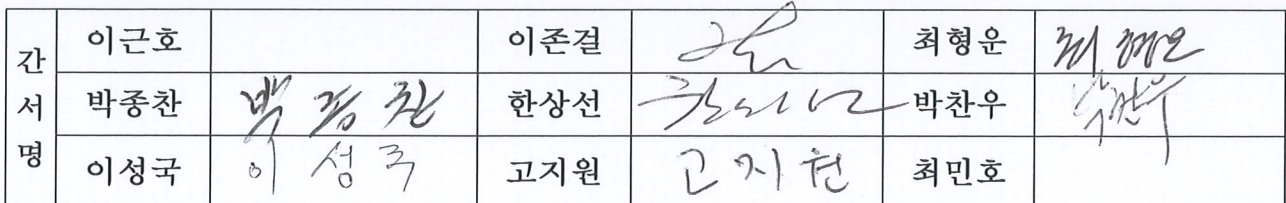 간 이근호 이존걸 최형운 최형운
서 박종찬 박종찬 한상선 한상선 박찬우 박찬우
명 이성국 이성국 고지원 고지원 최민호